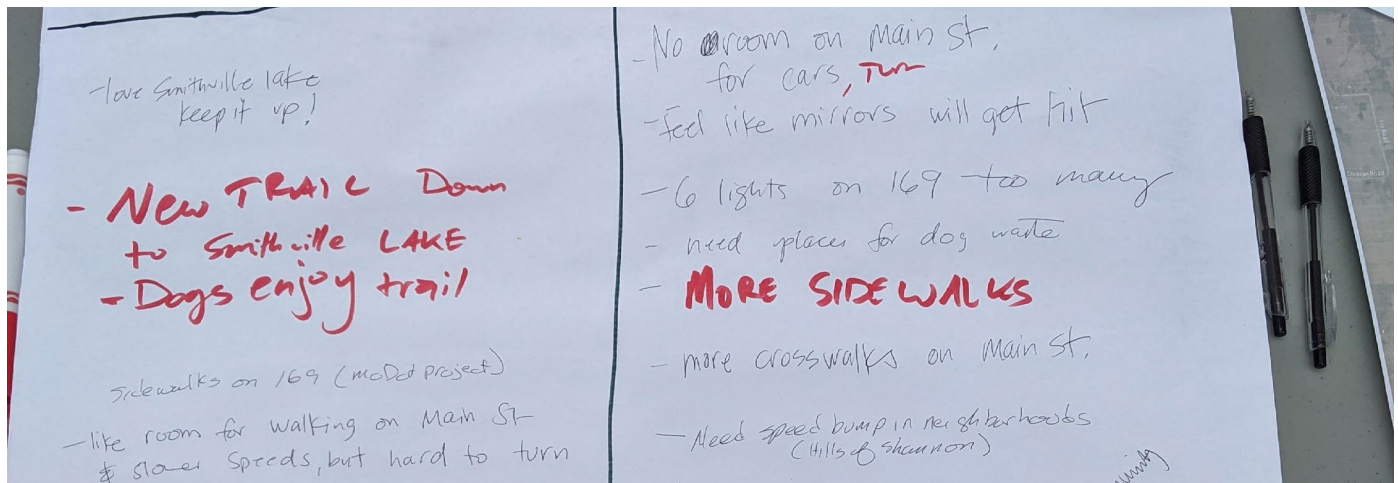 -love Smithville lake
keep it up!
- New TRAIL Down
to Smithville LAKE
- Dogs enjoy trail
sidewalks on 169 (MoDot project)
- like room for walking on Main St
& slower speeds, but hard to turn
- No room on Main St.
for cars, Turn
- feel like mirrors will get hit
- 6 lights on 169 too many
- need places for dog waste
- MORE SIDEWALKS
- more crosswalks on Main St.
- Need speed bump in neighborhoods
(Hills of Shannon)